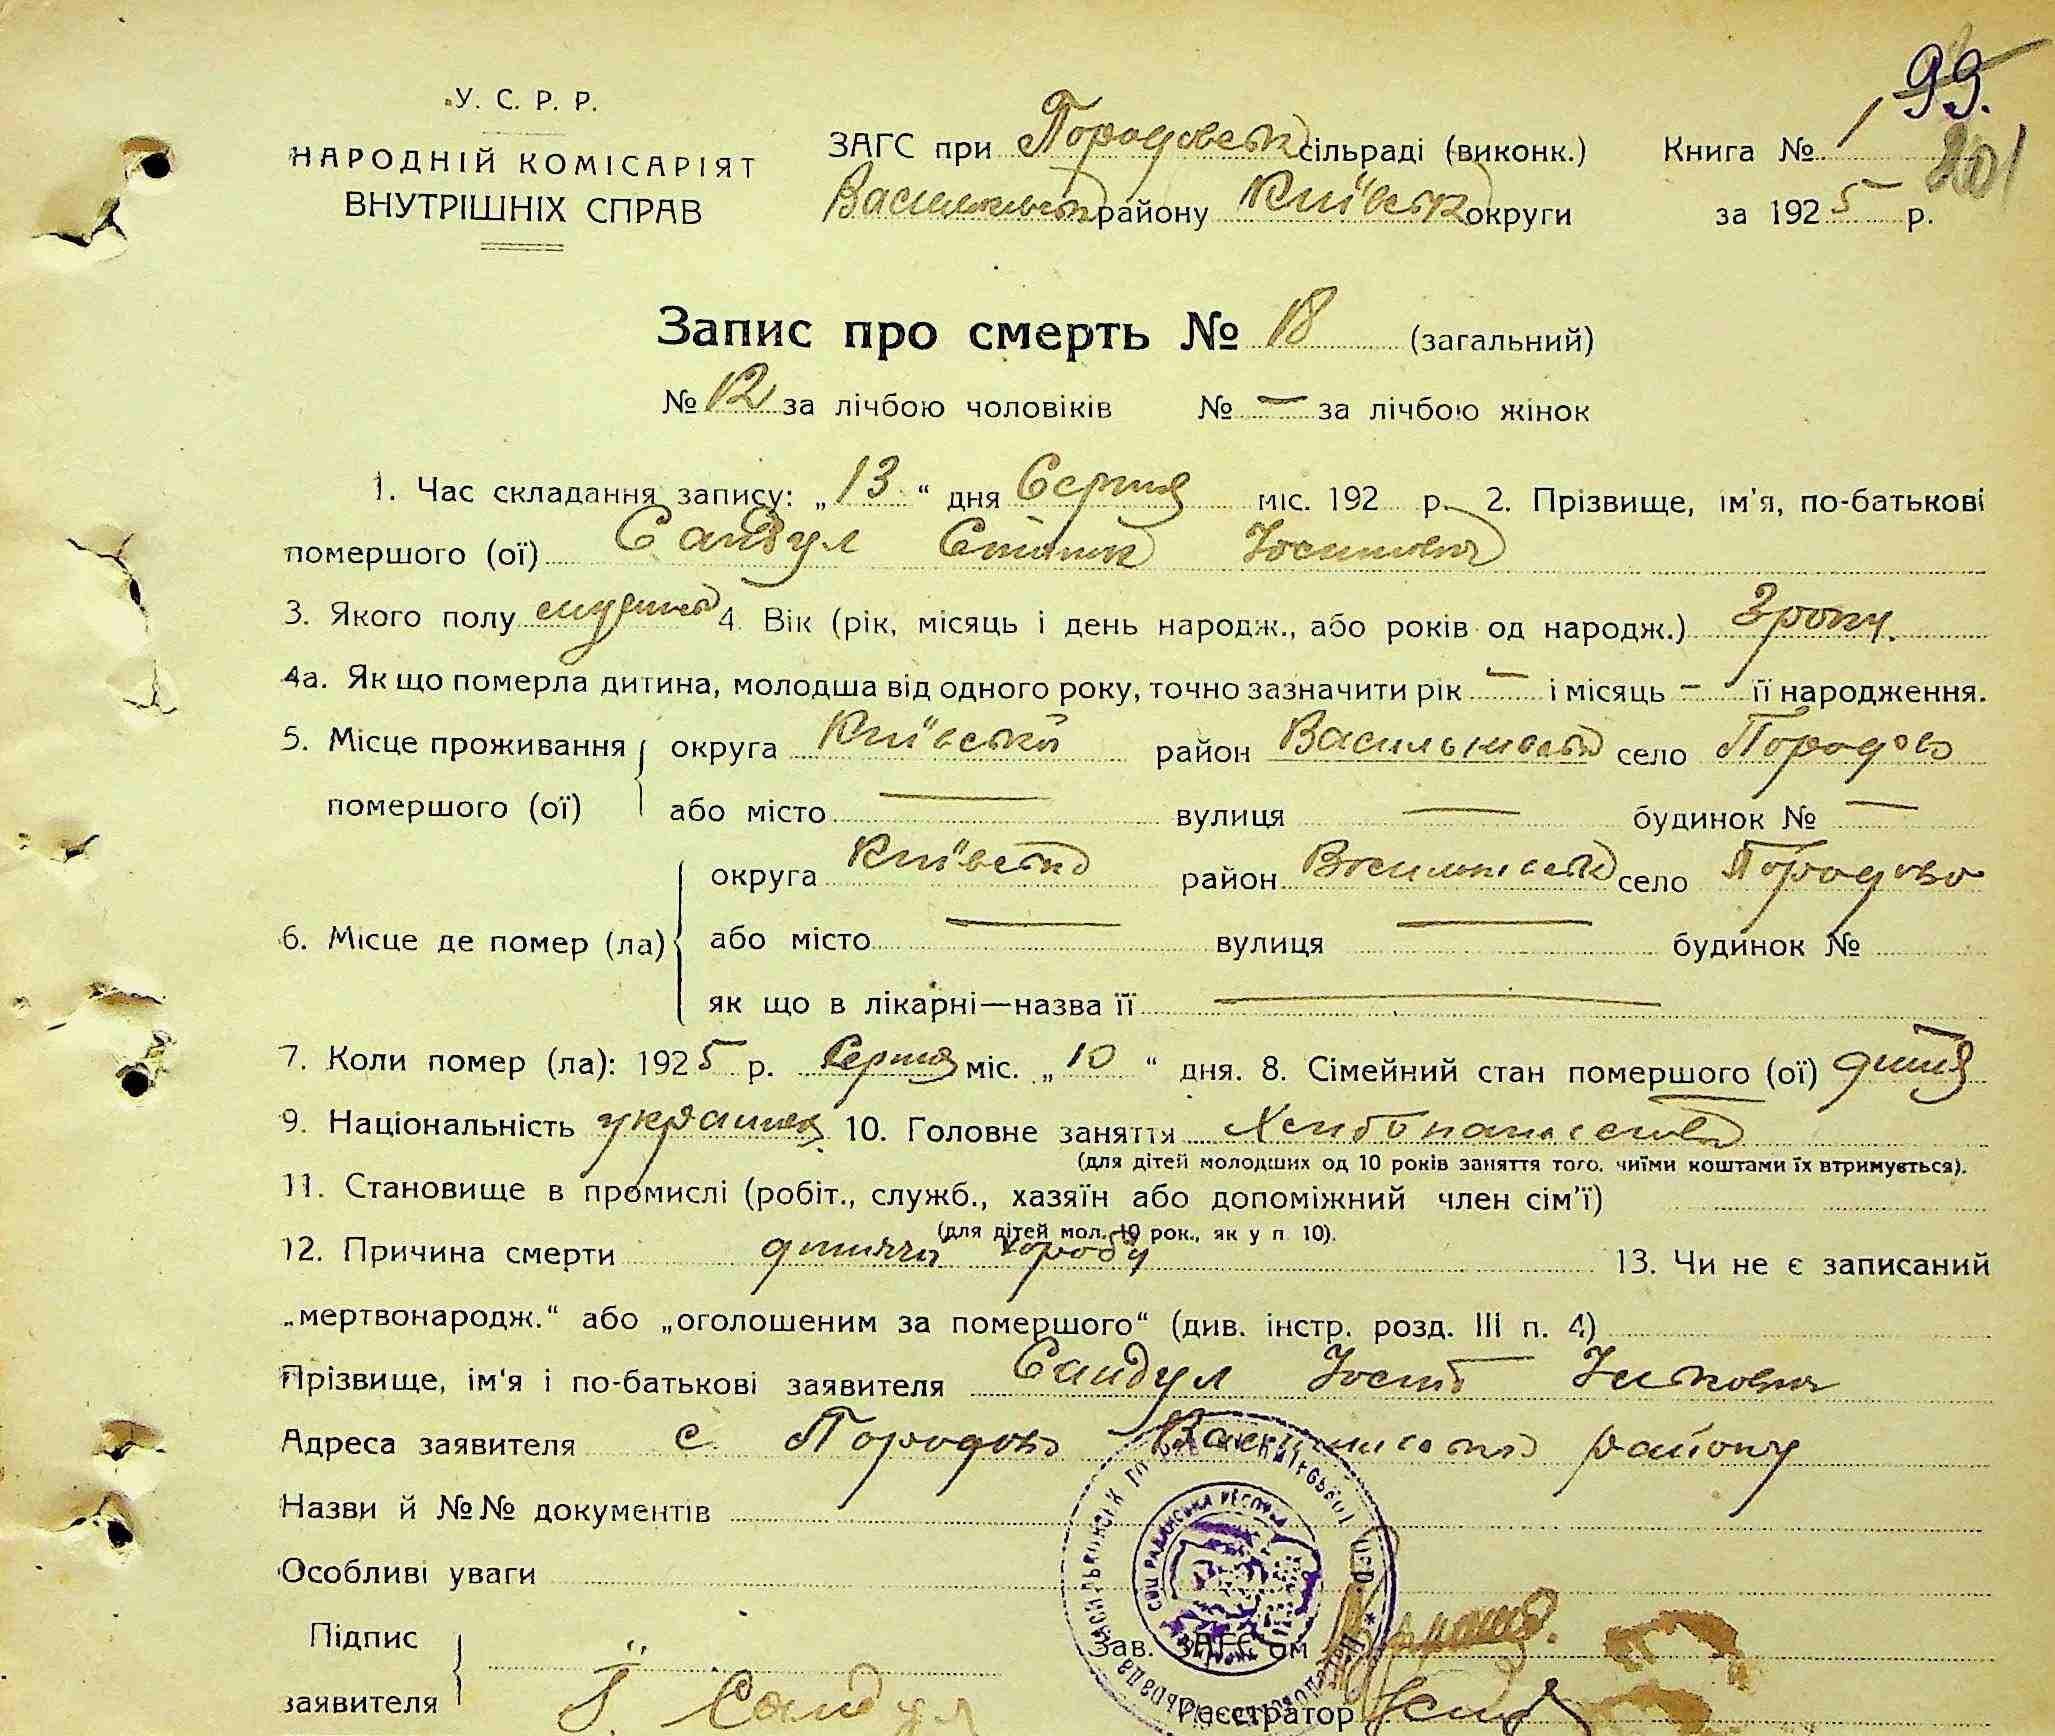 99.
У. С. Р. Р.
НАРОДНІЙ КОМІСАРІЯТ
ВНУТРІШНІХ СПРАВ
ЗАГС при Порадовськ сільраді (виконк.) Книга № 1
201
Васильківськ району Київськ округи за 1925 р.
Запис про смерть № 18 (загальний)
№ 12 за лічбою чоловіків № — за лічбою жінок
1. Час складання запису: „13“ дня Серпня міс. 192 р. 2. Прізвище, ім'я, по-батькові
помершого (ої) Сандул Степан Йосипович
3. Якого полу 4. Вік (рік, місяць і день народж., або років од народж.) 3 роки.
4а. Як що померла дитина, молодша від одного року, точно зазначити рік — і місяць — її народження.
5. Місце проживання округа Київська район Васильківськ село Порадово
помершого (ої) або місто — вулиця — будинок № —
округа Київська район Васильківськ село Порадово
6. Місце де помер (ла) або місто — вулиця — будинок №
як що в лікарні—назва її —
7. Коли помер (ла): 1925 р. Серпня міс. „10“ дня. 8. Сімейний стан помершого (ої) дитя
9. Національність 10. Головне заняття
(для дітей молодших од 10 років заняття того, чиїми коштами їх втримується).
11. Становище в промислі (робіт., служб., хазяїн або допоміжний член сім'ї)
(для дітей мол. 10 рок., як у п. 10).
12. Причина смерти дитяча хороба 13. Чи не є записаний
„мертвонародж.“ або „оголошеним за помершого“ (див. інстр. розд. III п. 4)
Прізвище, ім'я і по-батькові заявителя Сандул Йосип
Адреса заявителя с. Порадово Васильківськ району
Назви й №№ документів
Особливі уваги
Підпис
Зав. ЗАГС'ом
заявителя Й. Сандул Реєстратор